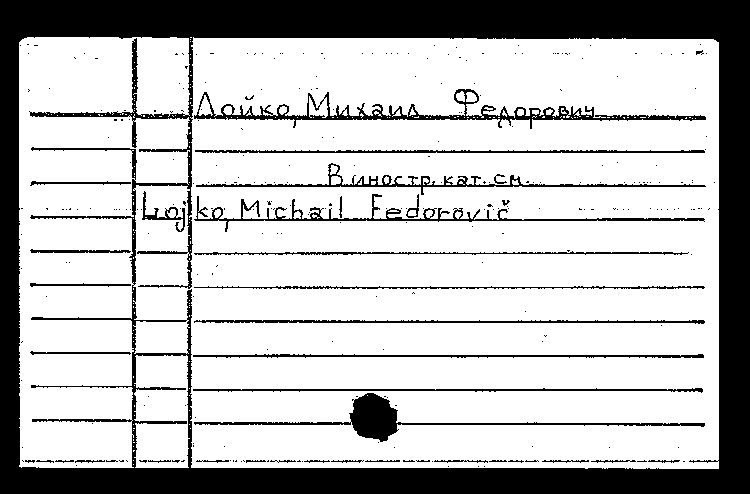 Лойко, Михаил Федорович
В иностр. кат. см.
Lojko, Michail Fedorovič